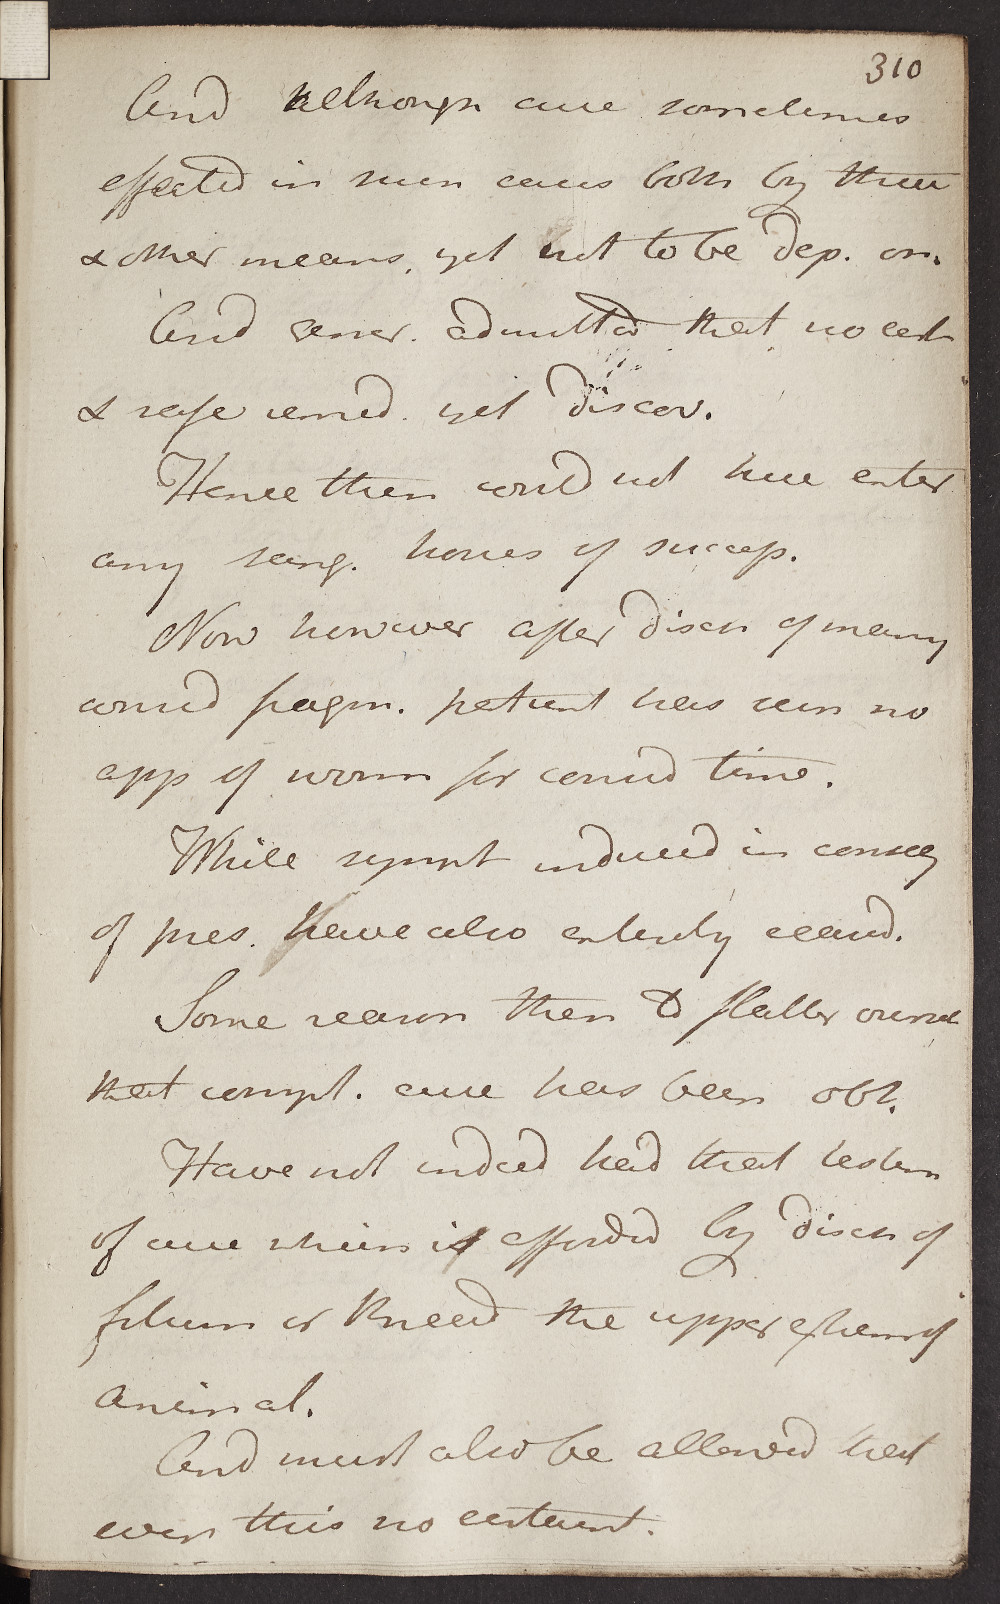 310
And although cure sometimes
effected in such cases both by these
& other means, yet not to be dep. on.
And gener. admitted that no cert
& safe remed. yet discov.
Hence then could not here enter
any sang. hopes of success.
Now however after disch of many
consid fragm. patient has seen no
app of worm for consid time.
While sympt induced in conseq
of pres. have also entirely ceased.
Some reason then to flatter oursel
that compl. cure has been obt.
Have not indeed had that testim
of cure which is afforded by disch of
filum or thread the upper extrem of
animal.
And must also be allowed that
even this no certaint.